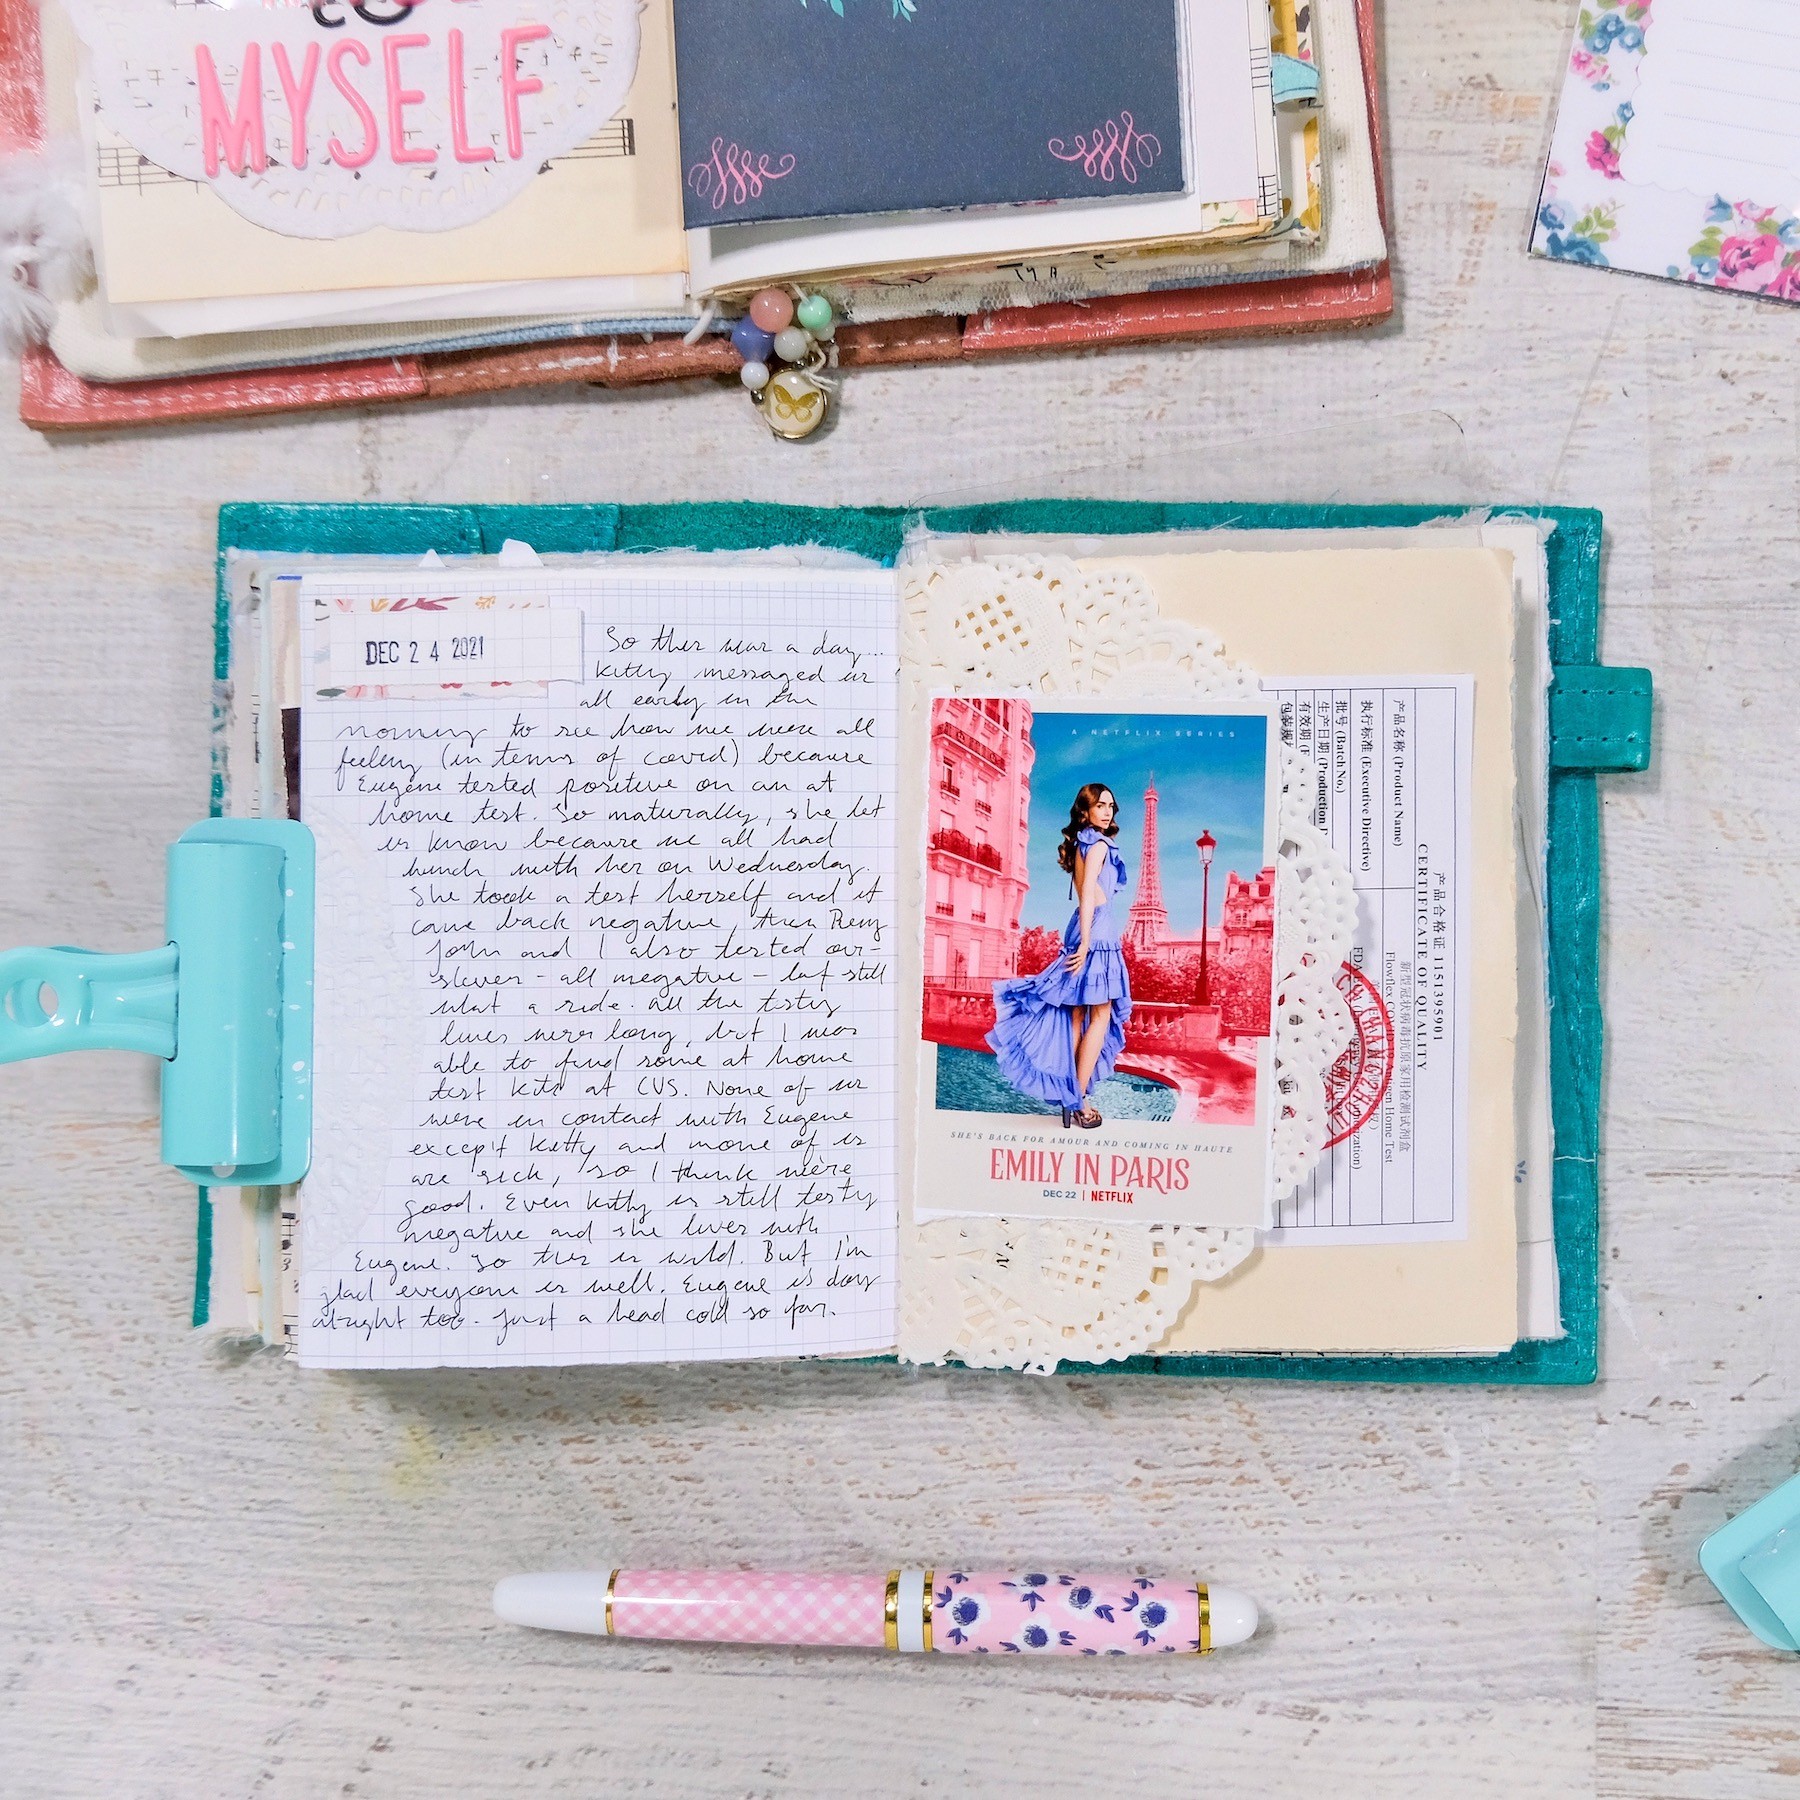 MYSELF
DEC 24 2021
So ther was a day...
Kitty messaged us
all early in the
morning to see how we were all
feeling (in terms of covid) because
Eugene tested positive on an at
home test. So naturally, she let
us know because we all had
lunch with her on Wednesday.
She took a test herself and it
came back negative, then
John and I also tested our-
selves - all negative - but still
what a ride. All the testing
lines were long, but I was
able to find some at home
test kits at CVS. None of us
were in contact with Eugene
except Kitty and none of us
are sick, so I think we're
good. Even Kitty is still testing
negative and she lives with
Eugene. So this is wild. But I'm
glad everyone is well. Eugene is doing
alright too. Just a head cold so far.
A NETFLIX SERIES
SHE'S BACK FOR AMOUR AND COMING IN HAUTE
EMILY IN PARIS
DEC 22 | NETFLIX
产品合格证 1151395901
CERTIFICATE OF QUALITY
产品名称 (Product Name)
新型冠状病毒抗原家用检测试剂盒
Flowflex COVID-19 Antigen Home Test
执行标准 (Executive Directive)
批号 (Batch No.)
生产日期 (Production
有效期
包装规